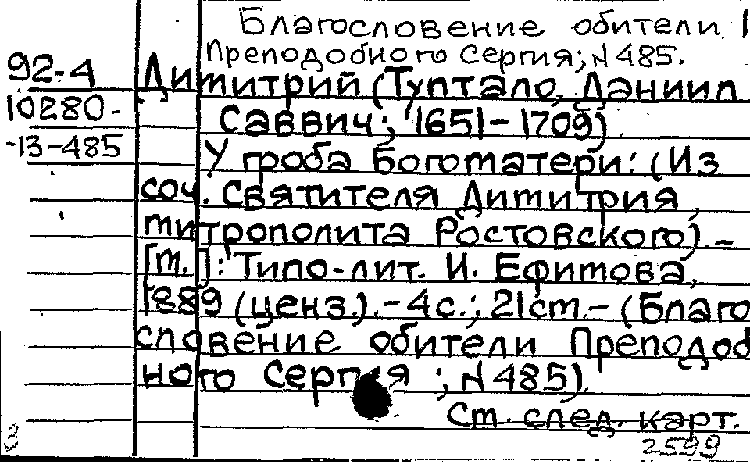 Благословение обители
Преподобного Сергия; N 485.
92-4
Димитрий (Туптало, Даниил
10280-
Саввич; 1651-1709)
-13-485
У гроба Богоматери: (Из
соч. Святителя Димитрия,
митрополита Ростовского) –
[М.]: Типо-лит. И. Ефимова,
1889 (ценз.). – 4 с.; 21 cm. – (Благо
словение обители Преподоб
ного Сергия; N 485)
Ст. след. карт.
2599